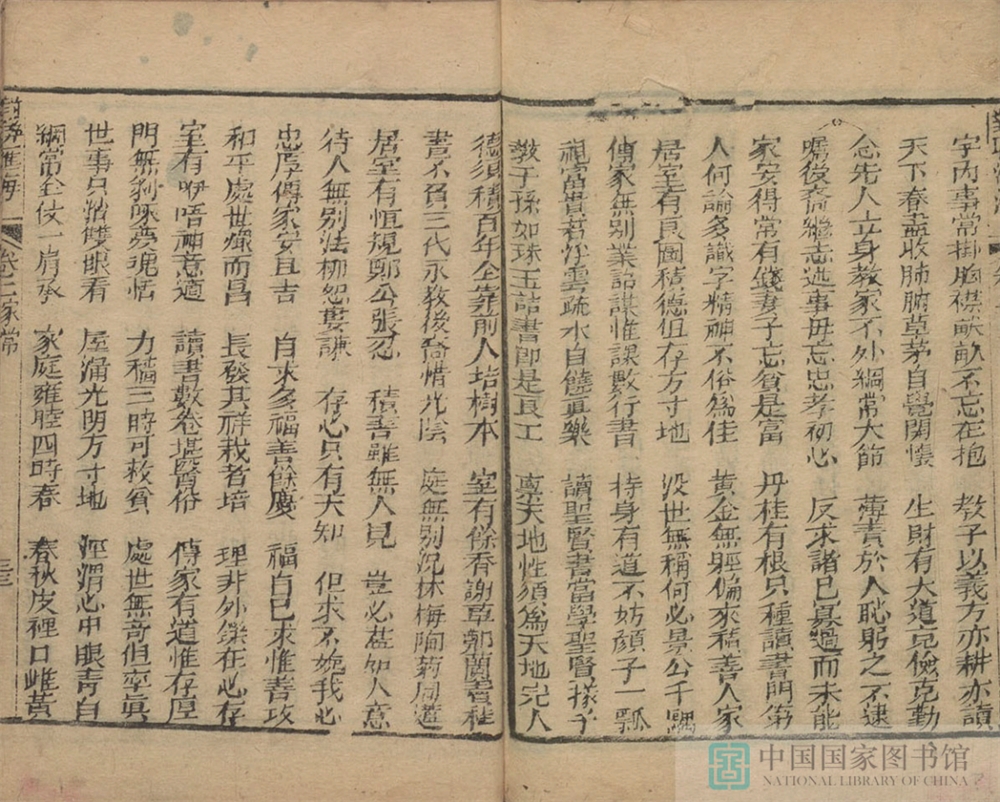 宇內事常掛胸襟畎畝不忘在抱 教子以義方亦耕亦讀
天下春盡收肺腑草茅自覺開懷 生財有大道克儉克勤
念先人立身教家不外綱常大節 薄責於人恥躬之不逮
囑後裔繼志述事毋忘忠孝初心 反求諸己寡過而未能
家安得常有錢妻子忘貧是富 丹桂有根只種讀書門第
人何論多識字精神不俗為佳 黃金無脛偏來積善人家
居室有良圖積德但存方寸地 沒世無稱何必景公千駟
傳家無別業詒謀惟課數行書 持身有道不妨顏子一瓢
視富貴若浮雲疏水自饒真樂 讀聖賢書當學聖賢樣子
教子孫如珠玉詩書即是良工 稟天地性須為天地完人
德須積百年全靠前人培樹本 室有餘香謝草鄭蘭竇桂
書不負三代永教後裔惜光陰 庭無別況林梅陶菊周蓮
居室有恆規鄭公張忍 積善雖無人見 豈必盡如人意
待人無別法柳恕婁謙 存心只有天知 但求不愧我心
忠厚傳家安且吉 自求多福善餘慶 福自己求惟善攻
和平處世熾而昌 長發其祥栽者培 理非外鑠在心存
室有咿唔神意適 讀書數卷堪醫俗 傳家有道惟存厚
門無剝啄夢魂恬 力穡三時可救貧 處世無奇但率真
世事只憑雙眼看 屋滿光陰方寸地 涇渭心中眼青白
綱常全仗一肩承 家庭雍睦四時春 春秋皮裡口雌黃
卷二家常
中国国家图书馆
NATIONAL LIBRARY OF CHINA